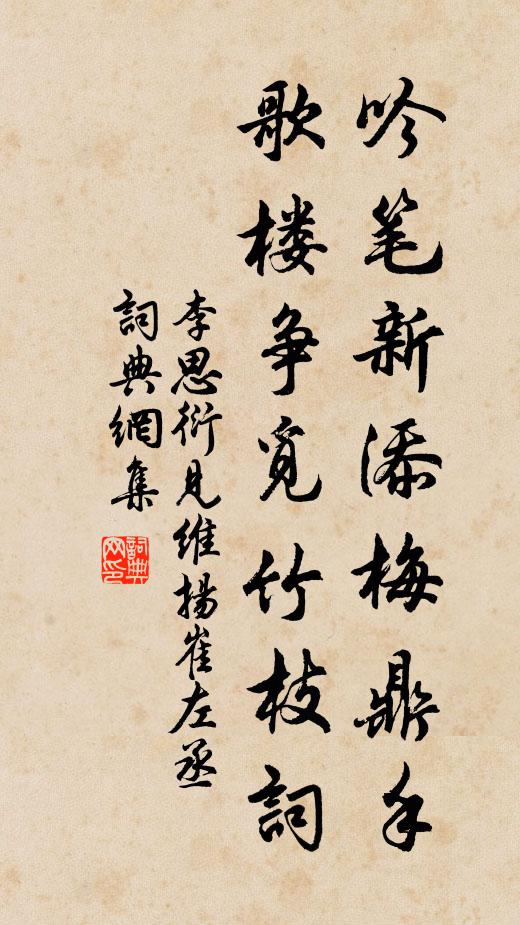 吟笔新添梅鼎手
歌楼争觅竹枝词
李思衍见维扬崔左丞
詞典網集
詞典网印